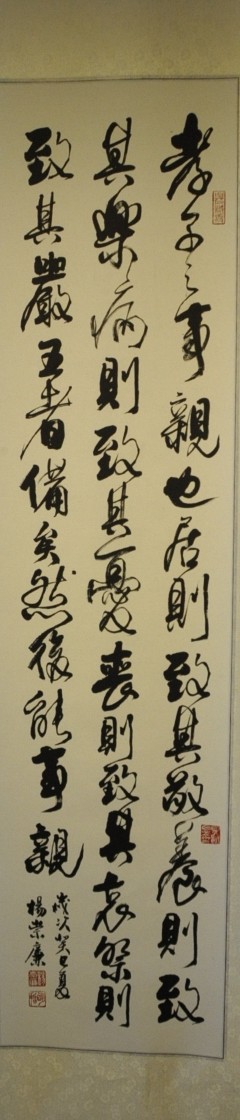 孝子之事親也居則致其敬養則致
其樂病則致其憂喪則致其哀祭則
致其嚴五者備矣然後能事親
歲次癸巳夏
楊崇廉